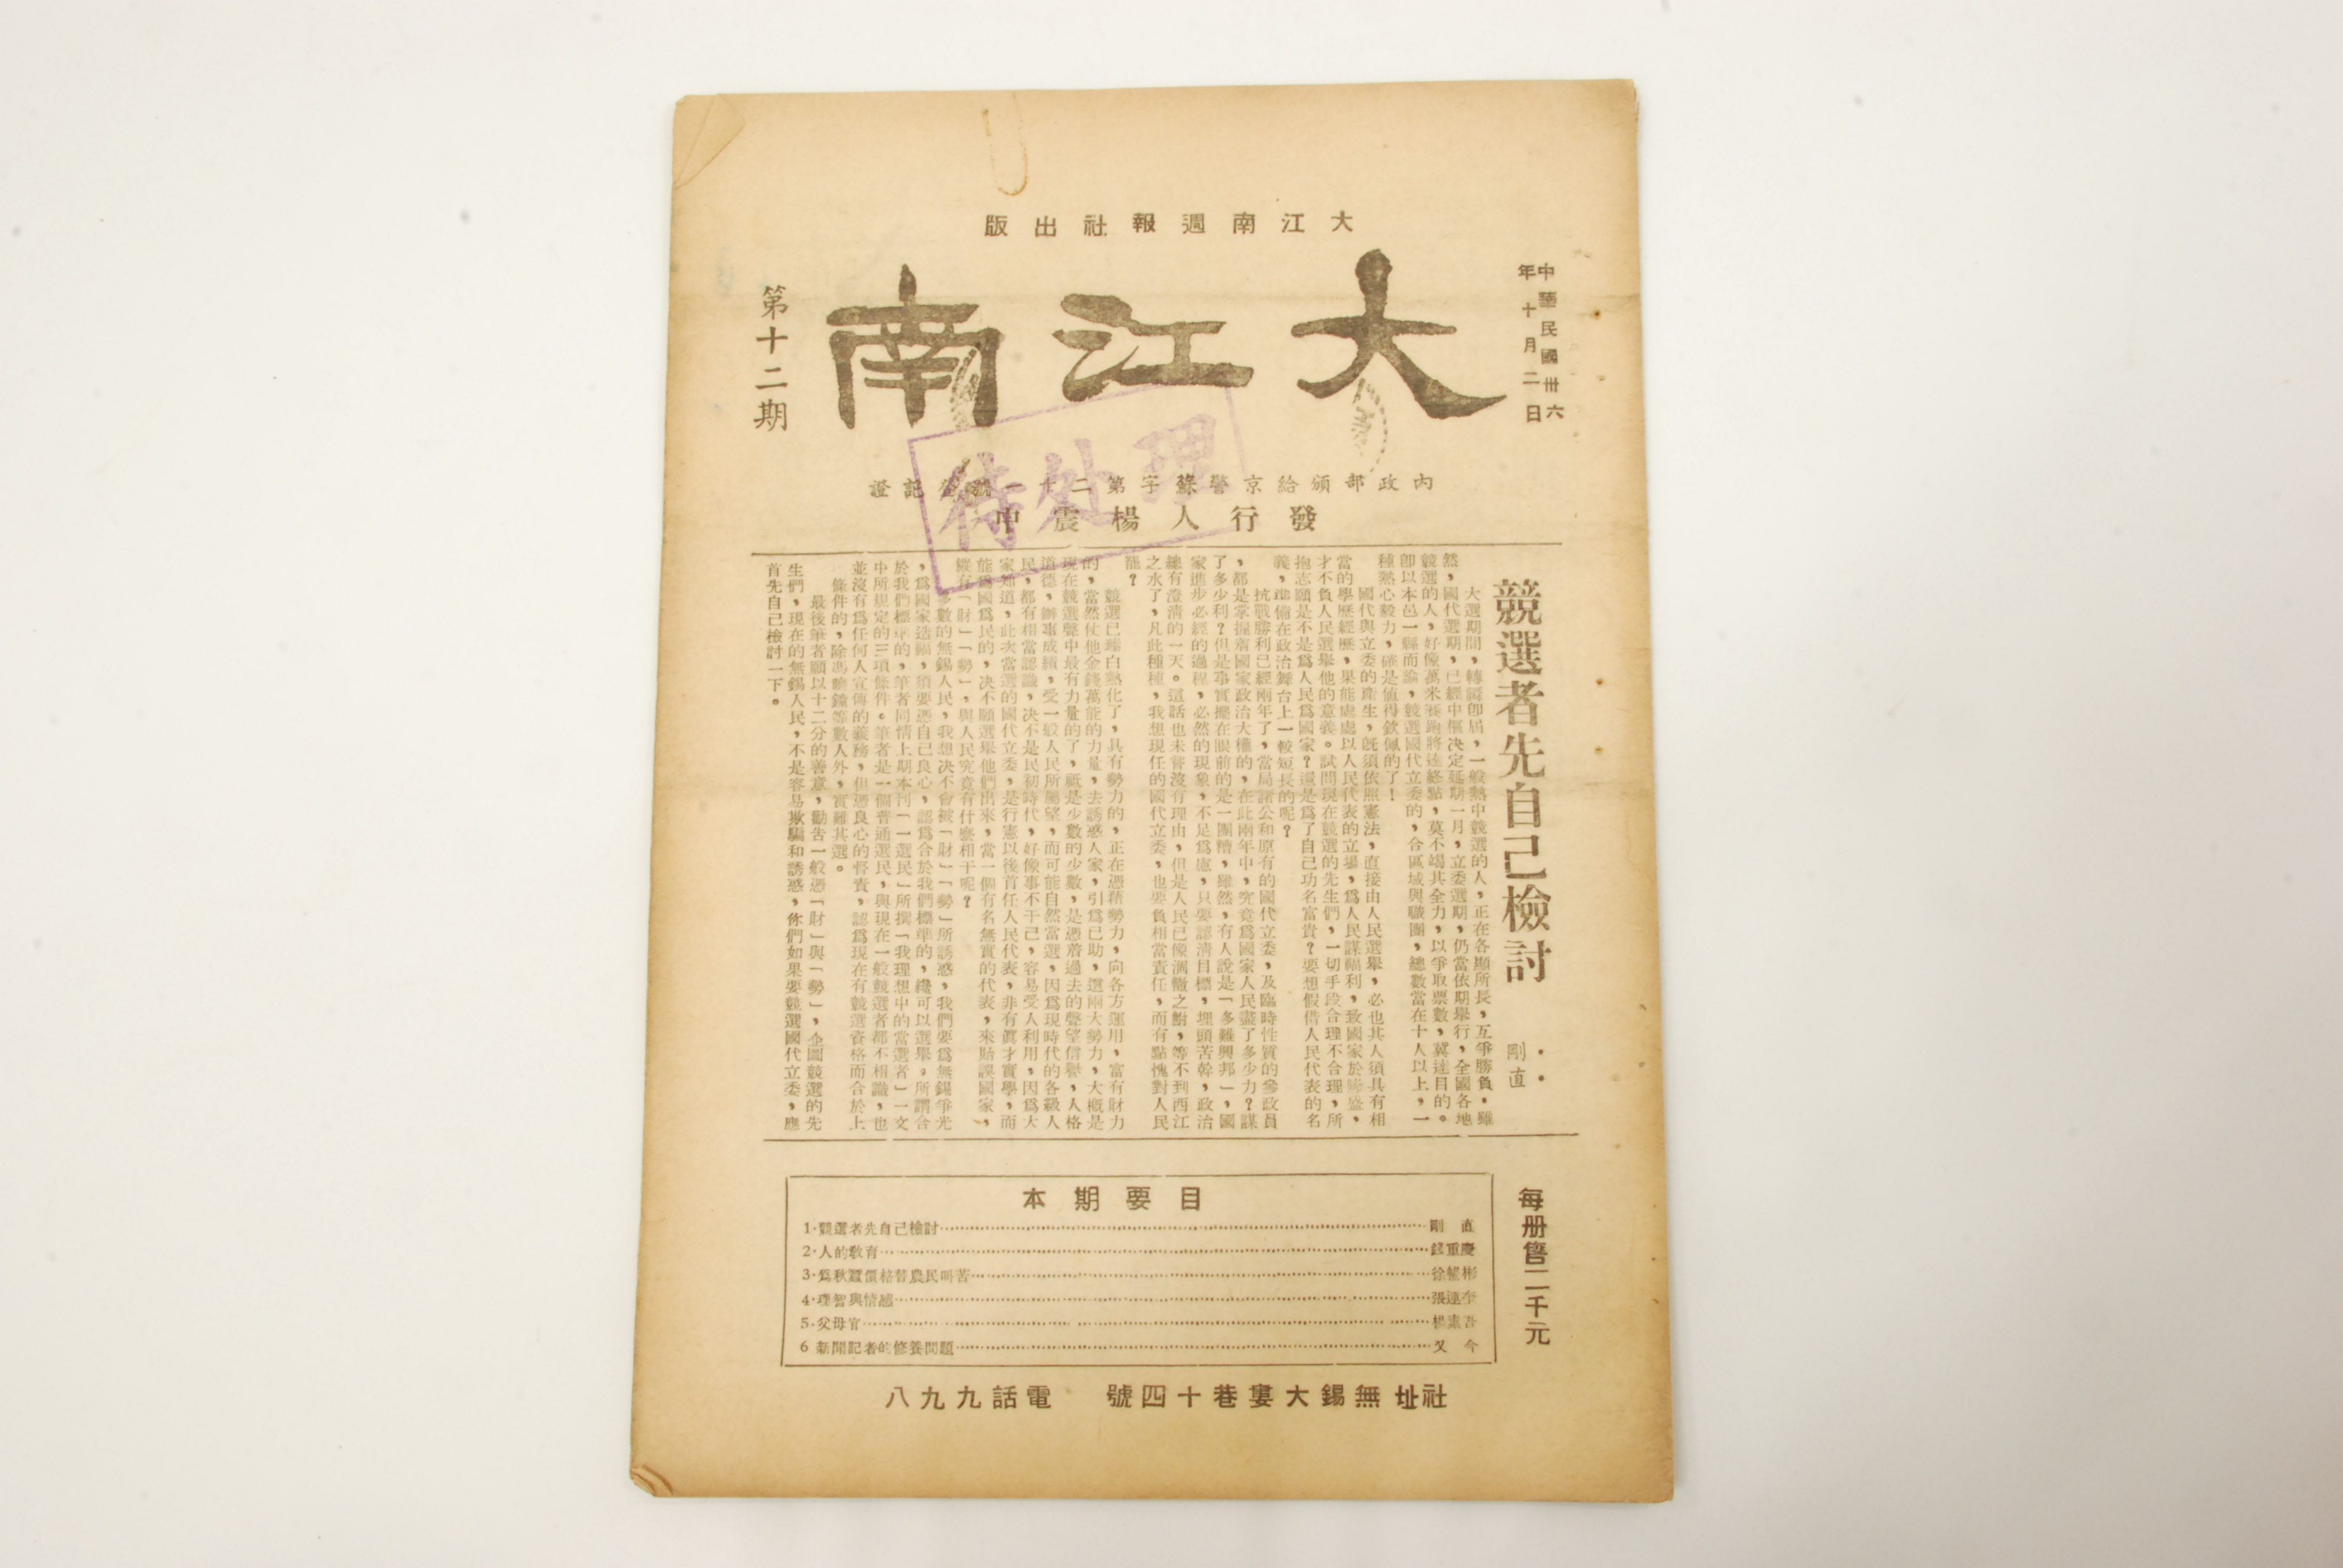 大江南週報社出版
中華民國卅六
年十月二日
大江南
第十二期
內政部頒給京警蘇字第二十一號登記證
發行人楊震中
待处理
競選者先自己檢討
剛直
大選期間，轉瞬卽屆，一般熱中競選的人，正在各顯所長，互爭勝負・雖
然，國代選期，已經中樞決定延期一月，立委選期，仍當依期舉行，全國各地
競選的人，好像萬米賽跑將達終點，莫不竭其全力，以爭取票數，冀達目的。
卽以本邑一縣而論，競選國代立委的，合區域與職團，總數當在十人以上，一
種熱心毅力，確是值得欽佩的了！
國代與立委的產生，旣須依照憲法，直接由人民選舉，必也其人須具有相
當的學歷經歷，果能處處以人民代表的立場，爲人民謀福利，致國家於隆盛，
才不負人民選舉他的意義。試問現在競選的先生們，一切手段合理不合理，所
抱志願是不是爲人民爲國家？還是爲了自己功名富貴？要想假借人民代表的名
義，準備在政治舞台上一較短長的呢？
抗戰勝利已經兩年了，當局諸公和原有的國代立委，及臨時性質的參政員
，都是掌握着國家政治大權的，在此兩年中，究竟爲國家人民盡了多少力？謀
了多少利？但是事實擺在眼前的是一團糟，雖然，有人說是「多難興邦」，國
家進步必經的過程，必然的現象，不足爲慮，只要認淸目標，埋頭苦幹，政治
總有澄淸的一天。這話也未嘗沒有理由，但是人民已像涸轍之鮒，等不到西江
之水了，凡此種種，我想現任的國代立委，也要負相當責任，而有點愧對人民
罷？
競選已臻白熱化了，具有勢力的，正在憑藉勢力，向各方運用，富有財力
的，當然仗他金錢萬能的力量，去誘惑人家，引爲已助，這兩大勢力，大概是
現在競選聲中最有力量的了，祗是少數的少數，是憑着過去的聲望信譽，人格
道德，辦事成績，受一般人民所屬望，而可能自然當選，因爲現時代的各級人
民，都有相當認識，決不是民初時代，好像事不干己，容易受人利用，因爲大
家知道，此次當選的國代立委，是行憲以後首任人民代表，非有眞才實學，而
能爲國爲民的，決不願選舉他們出來，當一個有名無實的代表，來貽誤國家，
縱有「財」「勢」，與人民究竟有什麼相干呢？
多數的無錫人民，我想決不會被「財」「勢」所誘惑，我們要爲無錫爭光
，爲國家造福，須要憑自己良心，認爲合於我們標準的，纔可以選舉。所謂合
於我們標準的，筆者同情上期本刊「一選民」所撰「我理想中的當選者」一文
中所規定的三項條件。筆者是一個普通選民，與現在一般競選者都不相識，也
並沒有爲任何人宣傳的義務，但憑良心的督責，認爲現在有競選資格而合於上
條件的，除馮曉鐘等數人外，實難其選。
最後筆者願以十二分的善意，勸告一般憑「財」與「勢」，企圖競選的先
生們，現在的無錫人民，不是容易欺騙和誘惑，你們如果要競選國代立委，應
首先自己檢討一下。
本期要目
1・競選者先自己檢討……剛　直
2・人的敎育……錢重慶
3・爲秋繭價格替農民叫苦……徐耀彬
4・理智與情感……張連奎
5・父母官……楊素吾
6 新聞記者的修養問題……又　今
每册售二千元
社址無錫大婁巷十四號　電話九九八